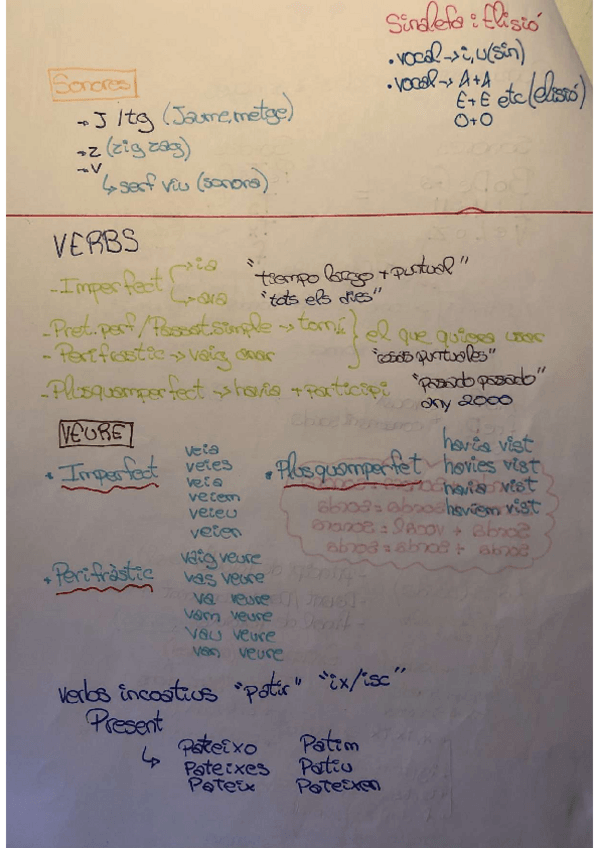 Sinalefa i Elisió
• vocal → i, u (sin)
• vocal → A + A
E + E etc (elisió)
O + O
Sonores
→ J / tg (Jaume, metge)
→ z (zig zag)
→ v
↳ serf viu (sonora)
VERBS
- Imperfect → ia "tiempo largo + puntual"
→ ava "tots els dies"
- Pret. perf / Passat simple → torní } el que quieras usar
- Perifrastic → vaig anar "cosas puntuales"
- Plusquamperfect → havia + participi "Pasado pasado"
any 2000
VEURE
• Imperfect
veia
veies
veia
veiem
veieu
veien
• Plusquamperfet
havia vist
havies vist
havia vist
havíem vist
• Perifràstic
vaig veure
vas veure
va veure
vam veure
vau veure
van veure
verbs incoatius "patir" "ix/isc"
Present
↳ Pateixo Patim
Pateixes Patiu
Pateix Pateixen